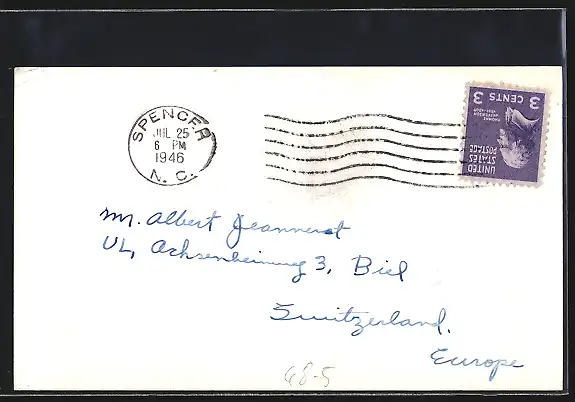 SPENCER
JUL 25
6 PM
1946
N. C.
3 CENTS 3
THOMAS JEFFERSON
UNITED
STATES
POSTAGE
Mr. Albert Jeannerat
UL, 3, Biel
Switzerland.
Europe
68-5